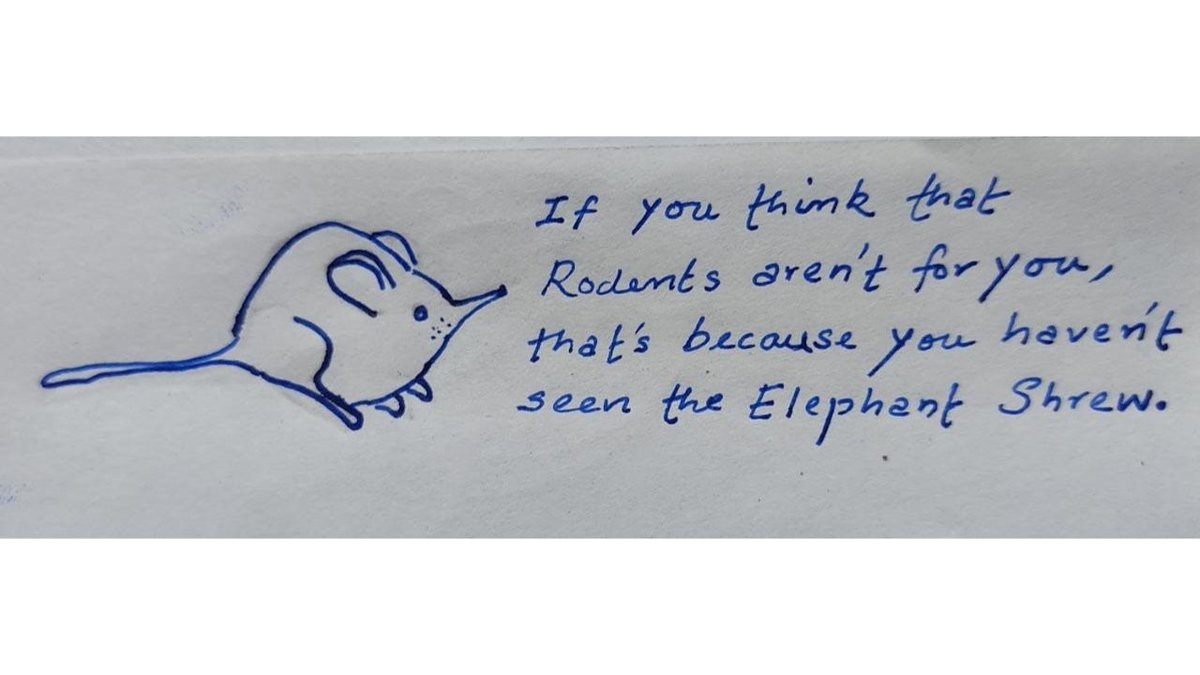 If you think that
Rodents aren't for you,
that's because you haven't
seen the Elephant Shrew.